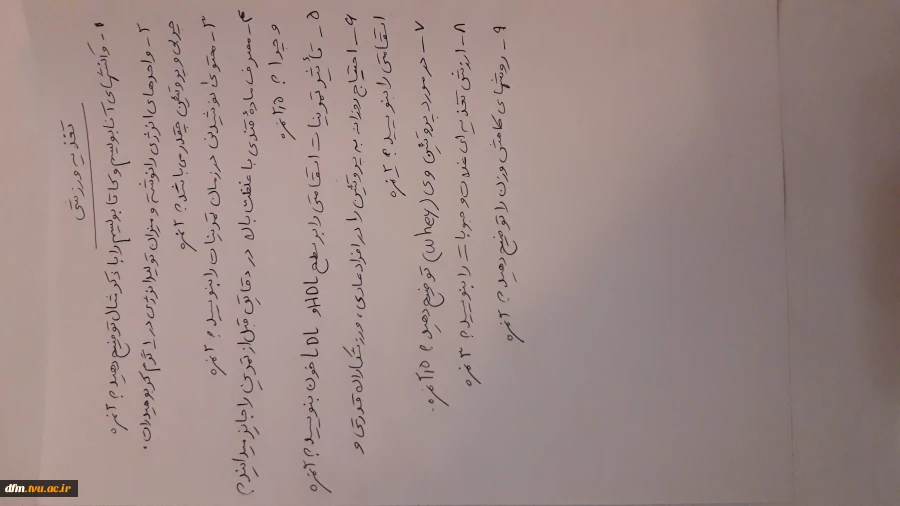 تغذیه ورزشی
۱- واکنشهای آنابولیسم و کاتابولیسم را با ذکر مثال توضیح دهید؟ ۲نمره
۲- واحدهای انرژی را نوشته و میزان تولید انرژی در ۱ گرم کربوهیدرات،
چربی و پروتئین چقدر می باشد؟ ۲نمره
۳- محتوای نوشیدنی در زمان تمرینات را بنویسید؟ ۲نمره
۴- مصرف ماده قندی با غلظت بالا در دقایق قبل از تمرین را جایز میدانید؟
و چرا؟ ۱/۵نمره
۵- تأثیر تمرینات استقامتی را بر سطح HDL و LDL خون بنویسید؟ ۲نمره
۶- احتیاج روزانه به پروتئین را در افراد عادی، ورزشکاران قدرتی و
استقامتی را بنویسید؟ ۳نمره
۷- در مورد پروتئین وی (whey) توضیح دهید؟ ۱/۵نمره.
۸- ارزش تغذیه ای غلات و حبوبات را بنویسید؟ ۳نمره
۹- روشهای کاهش وزن را توضیح دهید؟ ۲نمره
dfm.tvu.ac.ir